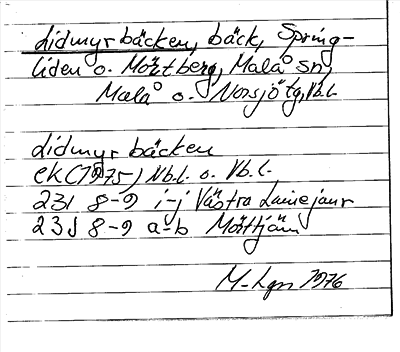 Lidmyrbäcken, bäck, Spring-
liden o. Mörtberg, Malå sn,
Malå o. Norsjö tg, Vb.l.
Lidmyrbäcken
ek (1975) Nb.l. o. Vb.l.
23I 8-9 i-j Västra Lainejaur
23J 8-9 a-b Mörttjärn
M-Lgn 1976